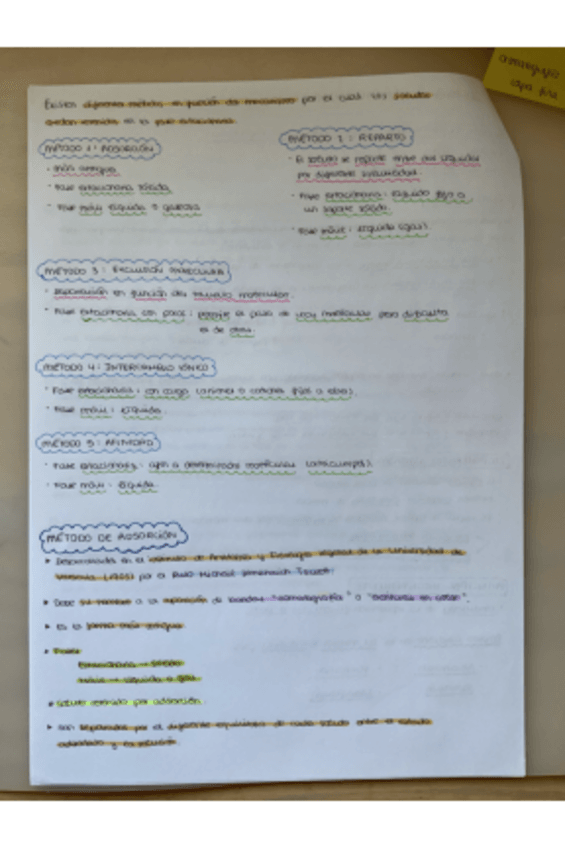 cromatografia
capa fina
Existen diferentes métodos en función del mecanismo por el cual los solutos
quedan retenidos en la fase estacionaria.
MÉTODO 1: ADSORCIÓN
· más antigua.
· Fase estacionaria sólida.
· Fase móvil líquida o gaseosa
MÉTODO 2: REPARTO
· El soluto se reparte entre dos líquidos
por diferente solubilidad.
· Fase estacionaria: líquido fijo a
un soporte sólido.
· Fase móvil: líquida (gas).
MÉTODO 3: EXCLUSIÓN MOLECULAR
· Separación en función del tamaño molecular.
· Fase estacionaria con poros: permite el paso de unas moléculas pero dificulta
el de otras.
MÉTODO 4: INTERCAMBIO IÓNICO
· Fase estacionaria: con carga (aniones o cationes fijos a ella).
· Fase móvil: líquida.
MÉTODO 5: AFINIDAD
· Fase estacionaria: afín a determinadas moléculas
· Fase móvil: líquida.
MÉTODO DE ADSORCIÓN
▸ Descubierta en el de Anatomía y Fisiología vegetal de la Universidad de
Varsovia (1903) por el
▸ Debe su nombre a la separación de "cromatografía" o "escritura en color".
▸ Es la forma más antigua
▸ Fases
Estacionaria → sólido
Móvil → líquida o gas
▸ Soluto retenido por adsorción.
▸ Son separados por el diferente equilibrio de cada soluto entre el estado
adsorbido y la solución.